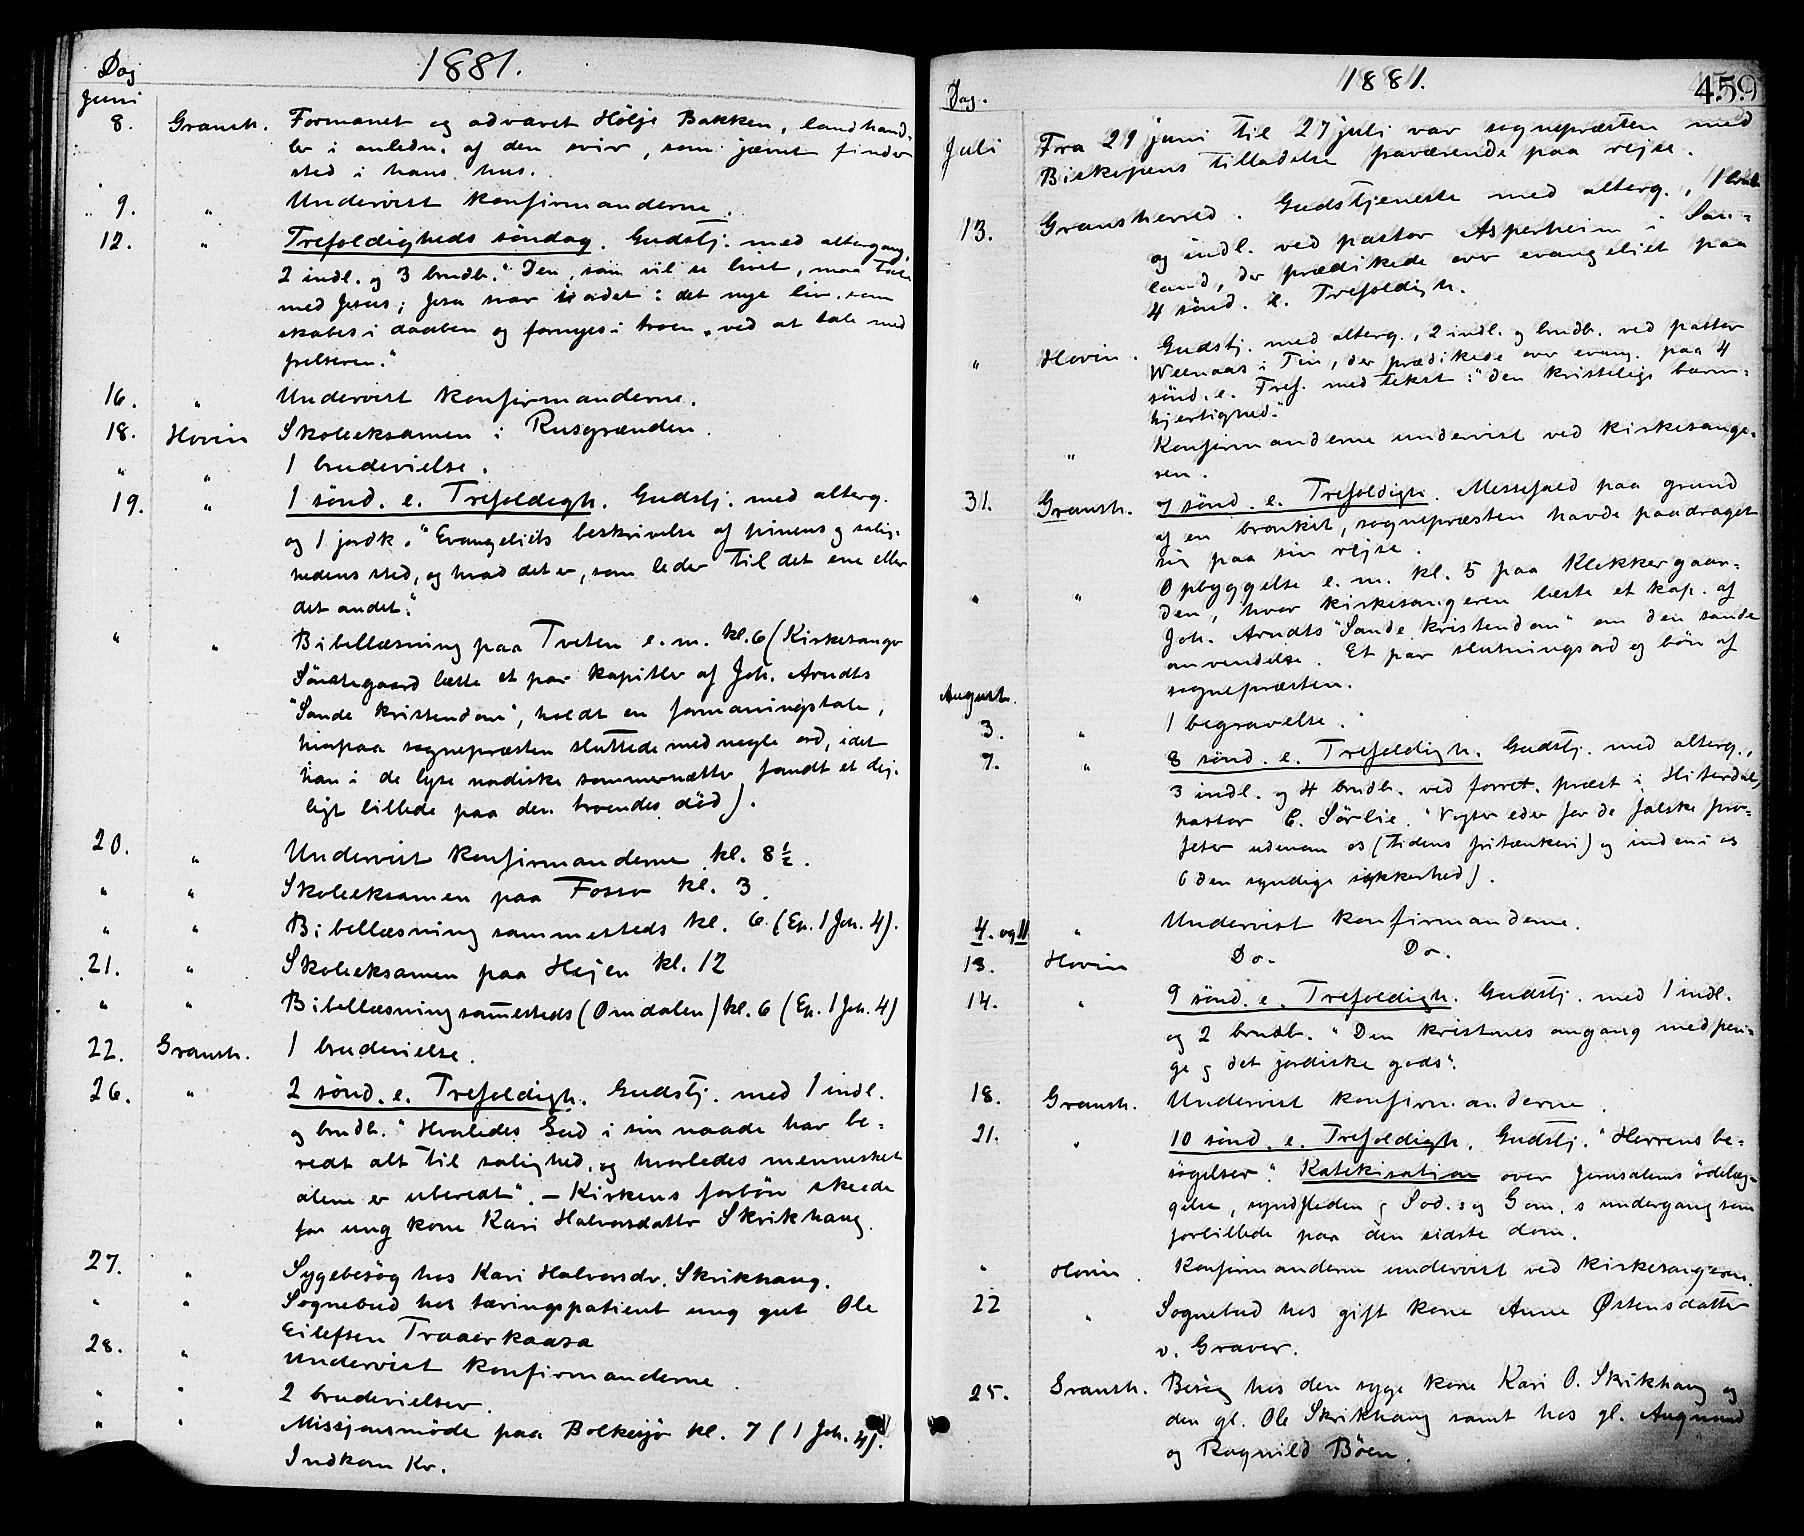 1881.
Dag
Juni
8. Gransh. Formanet og advaret Hølje Bakken, landhand-
ler i anledn. af den svir, som jævnt finder
sted i hans hus.
9. " Undervist konfirmanderne.
12. " Trefoldigheds søndag. Gudstj. med altergang,
2 indl. og 3 brudb. "Den, som vil se livet, maa tale
med Jesus; Jesu svar er det: det nye liv, som
skabes i daaben og fornyes i troen, ved at tale med
frelseren."
16. " Undervist konfirmanderne.
18. Hovin Skoleeksamen i Rusgrænden.
" " 1 brudevielse.
19. " 1 sønd. e. Trefoldigh. Gudstj. med alterg.
og 1 jordk. "Evangeliets beskrivelse af pinens og salig-
hedens sted, og hvad det er, som leder til det ene eller
det andet."
" " Bibellæsning paa Tveten e. m. kl. 6 (Kirkesanger
Sønstegaard læste et par kapitler af Joh. Arndts
"Sande kristendom", holdt en formaningstale,
hvorpaa sognepræsten sluttede med nogle ord, idet
han i de lyse nordiske sommernætter fandt et dej-
ligt billede paa den troendes død).
20. " Undervist konfirmanderne kl. 8 1/2.
" " Skoleeksamen paa Fosso kl. 3.
" " Bibellæsning sammesteds kl. 6 (Ep. 1 Joh. 4).
21. " Skoleeksamen paa Hejen kl. 12
" " Bibellæsning sam̅esteds (Omdalen) kl. 6 (Ep. 1 Joh. 4)
22. Gransh. 1 brudevielse.
26. " 2 sønd. e. Trefoldigh. Gudstj. med 1 indl.
og brudb. "Hvorledes Gud i sin naade har be-
redt alt til salighed, og hvorledes mennesket
alene er uberedt". – Kirkens forbøn skeede
for ung kone Kari Halvorsdatter Skrikhaug.
27. " Sygebesøg hos Kari Halvorsdr. Skrikhaug.
" " Sognebud hos tæringspatient ung gut Ole
Eilefsen Traaerkaasa
28. " Undervist konfirmanderne.
" " 2 brudevielser.
" " Missjonsmøde paa Bolkesjø kl. 7 (1 Joh. 4).
Indkom Kr.
1881.
459
Dag.
Juli Fra 29 juni til 27 juli var sognepræsten med
Biskopens tilladelse fraværende paa rejse.
13. Gransherred. Gudstjeneste med alterg., 1 brudb.
og indl. ved pastor Asperheim i San-
land, der prædikede over evangeliet paa
4 sønd. e. Trefoldigh.
" Hovin. Gudstj. med alterg., 2 indl. og brudb. ved pastor
Weenaas i Tin, der prædikede over evang. paa 4
sønd. e. Tref. med tekst: "den kristelige barm-
hjertighed."
" Konfirmanderne undervist ved kirkesange-
ren.
31. Gransh. 7 sønd. e. Trefoldigh. Messefald paa grund
af en bronkit, sognepræsten havde paadraget
sig paa sin rejse.
" " Opbyggelse e. m. kl. 5 paa Klekkergaar-
den, hvor kirkesangeren læste et kap. af
Joh. Arndts "Sande kristendom" om den sande
anvendelse. Et par slutningsord og bøn af
sognepræsten.
August.
3. " 1 begravelse.
7. " 8 sønd. e. Trefoldigh. Gudstj. med alterg.,
3 indl. og 4 brudb. ved forret. præst i Hiterdal,
pastor C. Sørlie. "Vogter eder for de falske pro-
feter udenom os (tidens fritænkeri) og inden i os
(den syndige sikkerhed).
4. og 11 " Undervist konfirmanderne.
13. Hovin Do. Do.
14. " 9 sønd. e. Trefoldigh. Gudstj. med 1 indl.
og 2 brudb. "Den kristnes omgang med pen-
ge og det jordiske gods".
18. Gransh. Undervist konfirmanderne.
21. " 10 sønd. e. Trefoldigh. Gudstj. "Herrens be-
søgelser". Katekisation over Jerusalems ødelæg-
gelse, syndfloden og Sod.s og Gom.s undergang som
forbillede paa den sidste dom.
" Hovin. Konfirmanderne undervist ved kirkesangeren.
22 " Sognebud hos gift kone Anne Østensdatter
v. Graver.
25. Gransh. Besøg hos den syge kone Kari O. Skrikhaug og
den gl. Ole Skrikhaug samt hos gl. Augund
og Ragnild Bøen.